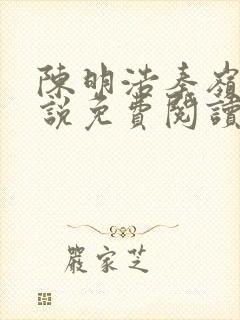 陳明浩秦嶺
說免費閱讀
嚴家芝